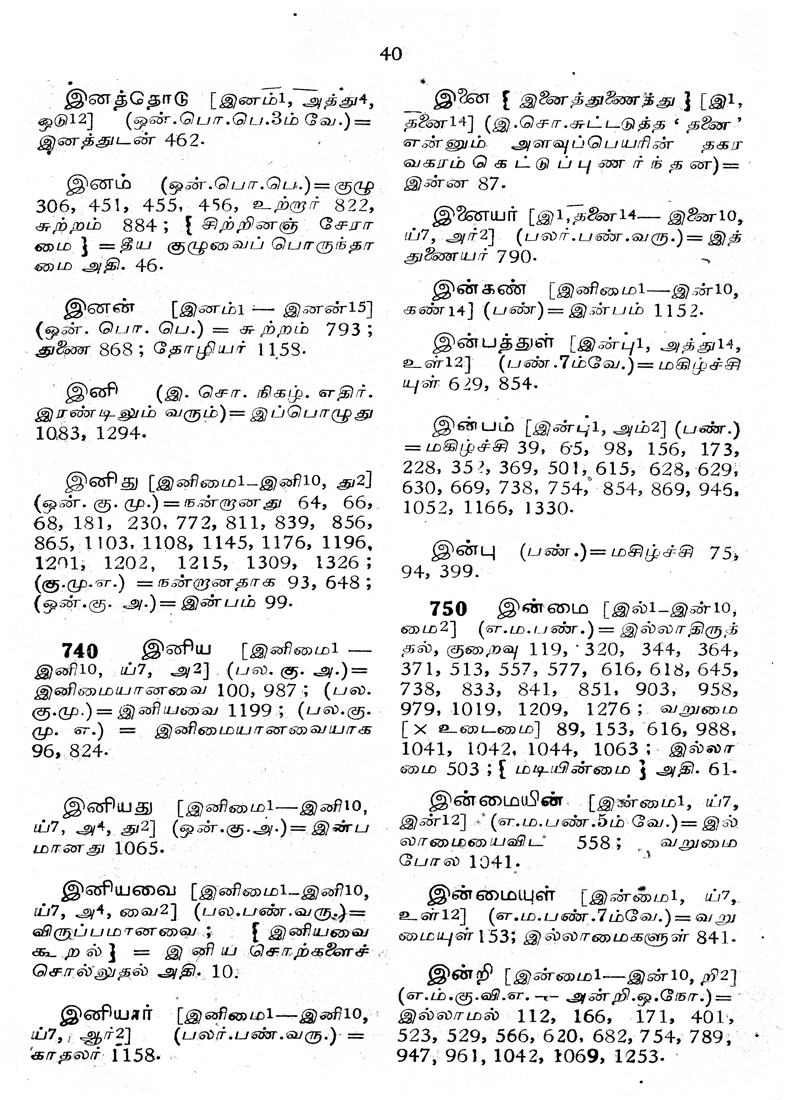 40
இனத்தொடு [இனம்1, அத்து4,
ஒடு12] (ஒன்.பொ.பெ.3ம் வே.)=
இனத்துடன் 462.
இனம் (ஒன்.பொ.பெ.)=குழு
306, 451, 455, 456, உற்றார் 822,
சுற்றம் 884; { சிற்றினஞ் சேரா
மை } =தீய குழுவைப் பொருந்தா
மை அதி. 46.
இனன் [இனம்1 — இனன்15]
(ஒன். பொ. பெ.) = சுற்றம் 793;
துணை 868; தோழியர் 1158.
இனி (இ. சொ. நிகழ். எதிர்.
இரண்டிலும் வரும்)=இப்பொழுது
1083, 1294.
இனிது [இனிமை1-இனி10, து2]
(ஒன். கு. மு.)=நன்றானது 64, 66,
68, 181, 230, 772, 811, 839, 856,
865, 1103, 1108, 1145, 1176, 1196,
1201, 1202, 1215, 1309, 1326;
(கு.மு.எ.) =நன்றானதாக 93, 648;
(ஒன்.கு. அ.)=இன்பம் 99.
740 இனிய [இனிமை1 —
இனி10, ய்7, அ2] (பல. கு. அ.)=
இனிமையானவை 100, 987; (பல.
கு.மு.)=இனியவை 1199; (பல.கு.
மு. எ.) = இனிமையானவையாக
96, 824.
இனியது [இனிமை1—இனி10,
ய்7, அ4, து2] (ஒன்.கு.அ.)=இன்ப
மானது 1065.
இனியவை [இனிமை1-இனி10,
ய்7, அ4, வை2] (பல.பண்.வரு.)=
விருப்பமானவை; { இனியவை
கூறல்} = இனிய சொற்களைச்
சொல்லுதல் அதி. 10.
இனியார் [இனிமை1—இனி10,
ய்7, ஆர்2] (பலர்.பண்.வரு.) =
காதலர் 1158.
இனை { இனைத்துணைத்து } [இ1,
தனை14] (இ.சொ.சுட்டடுத்த ‘ தனை’
என்னும் அளவுப்பெயரின் தகர
வகரம் கெட்டுப்புணர்ந்தன)=
இன்ன 87.
இனையர் [இ1,தனை14— இனை10,
ய்7, அர்2] (பலர்.பண்.வரு.)=இத்
துணையர் 790.
இன்கண் [இனிமை1—இன்10,
கண்14] (பண்)=இன்பம் 1152.
இன்பத்துள் [இன்பு1, அத்து14,
உள்12] (பண்.7ம்வே.)=மகிழ்ச்சி
யுள் 629, 854.
இன்பம் [இன்பு1, அம்2] (பண்.)
=மகிழ்ச்சி 39, 65, 98, 156, 173,
228, 352, 369, 501, 615, 628, 629,
630, 669, 738, 754, 854, 869, 946,
1052, 1166, 1330.
இன்பு (பண்.)=மகிழ்ச்சி 75,
94, 399.
750 இன்மை [இல்1-இன்10,
மை2] (எ.ம.பண்.)=இல்லாதிருத்
தல், குறைவு 119, 320, 344, 364,
371, 513, 557, 577, 616, 618, 645,
738, 833, 841, 851, 903, 958,
979, 1019, 1209, 1276; வறுமை
[× உடைமை] 89, 153, 616, 988,
1041, 1042, 1044, 1063; இல்லா
மை 503;{ மடியின்மை } அதி. 61.
இன்மையின் [இன்மை1, ய்7,
இன்12] (எ.ம.பண்.5ம் வே.)=இல்
லாமையைவிட 558; வறுமை
போல 1041.
இன்மையுள் [இன்மை1, ய்7,
உள்12] (எ.ம.பண்.7ம்வே.)=வறு
மையுள் 153; இல்லாமைகளுள் 841.
இன்றி [இன்மை1—இன்10, றி2]
(எ.ம்.கு.வி.எ. — அன்றி.ஒ.நோ.)=
இல்லாமல் 112, 166, 171, 401,
523, 529, 566, 620, 682, 754, 789,
947, 961, 1042, 1069, 1253.